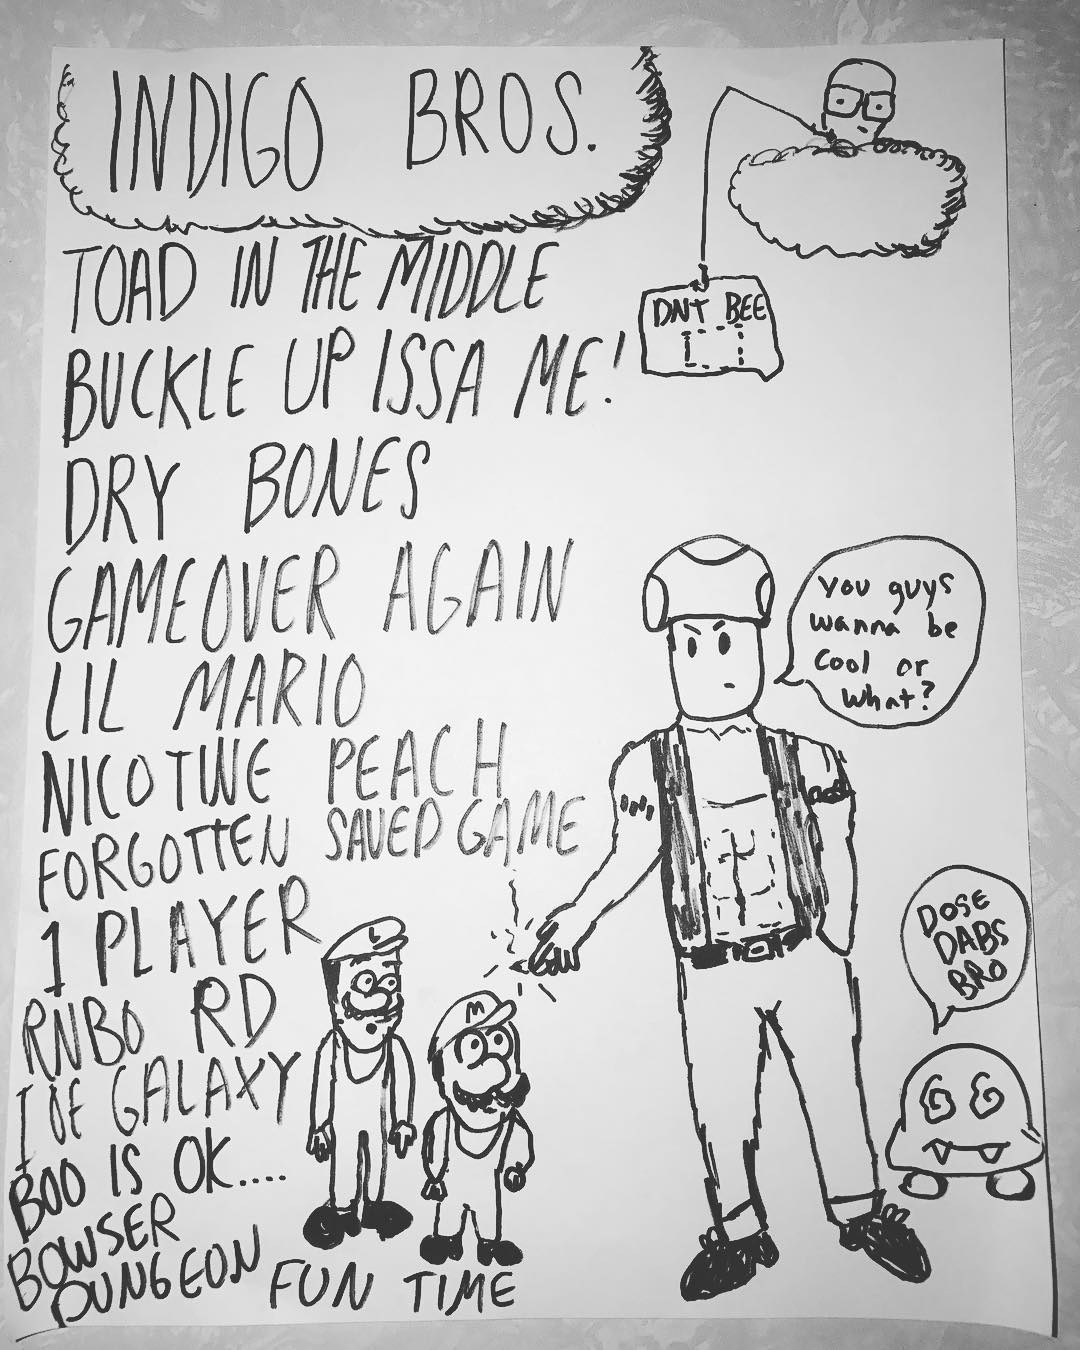 INDIGO BROS.
TOAD IN THE MIDDLE
BUCKLE UP ISSA ME!
DRY BONES
GAMEOVER AGAIN
LIL MARIO
NICOTINE PEACH
FORGOTTEN SAVED GAME
1 PLAYER
RNBO RD
I OF GALAXY
BOO IS OK....
BOWSER
DUNGEON
FUN TIME
DNT BEE
you guys
wanna be
Cool or
What?
L
M
DOSE
DABS
BRO